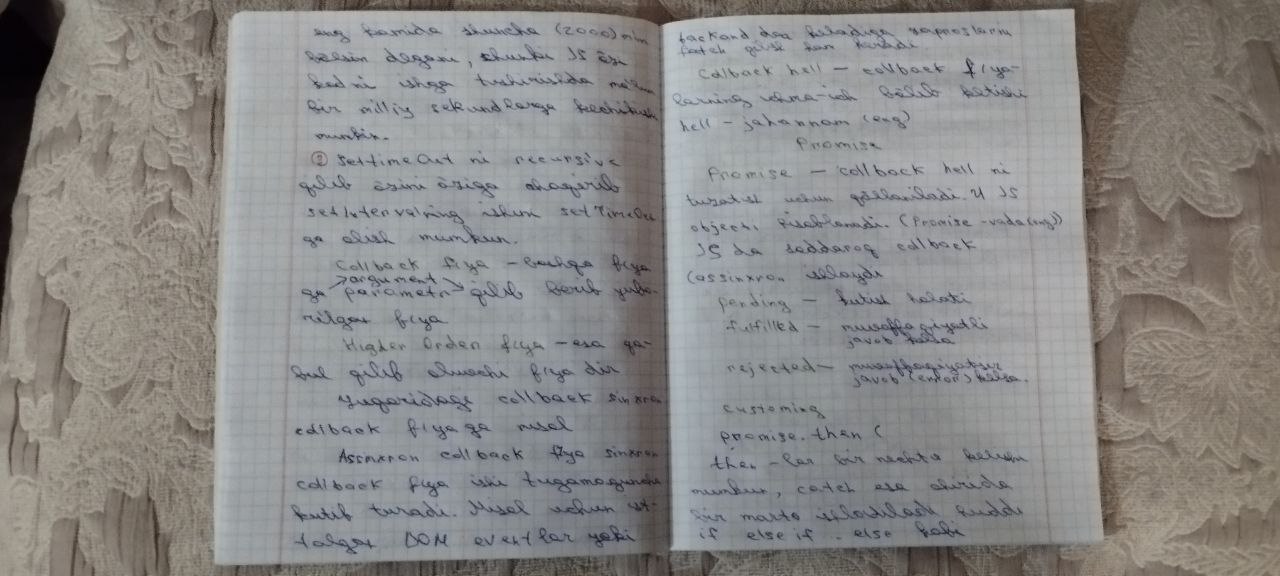 eng kamida shuncha (2000) min
bo'lsin degani, chunki JS o'zi
kodni ishga tushirishda ma'lum
bir milliy sekundlarga kechikishi
mumkin.
② setTimeOut ni recursive
qilib o'zini o'ziga chaqirib
setInterval ning ishini setTimeOut
ga olish mumkun.
Collback f-ya – boshqa f-ya
argument
ga parametr qilib berib yubo-
rilgan f-ya
Higher Orden f-ya – esa qa-
bul qilib oluvchi f-ya dir
Yuqoridagi collback sinxron
collback f-ya ga misol
Assinxron collback f-ya sinxron
collback f-ya ishi tugamaguncha
kutib turadi. Misol uchun ist-
talgan DOM eventlar yoki
backend dan keladigan zaproslarni
fetch qilish ham kiradi
Collback hell – collback f-ya-
larning ichma-ich bo'lib ketishi
hell – jahannam (eng)
Promise
Promise – collback hell ni
tuzatish uchun qo'llaniladi. U JS
objecti hisoblanadi. (Promise - vada (eng))
JS da soddaroq collback
(assinxron ishlaydi
pending – kutish holati
fulfilled – muvaffaqiyatli
javob kelsa
rejected – muvaffaqiyatsiz
javob (error) kelsa.
customing
promise.then (
then – lar bir nechta kelishi
mumkun, catch esa oxirida
bir marta ishlatiladi xuddi
if else if .. else kabi